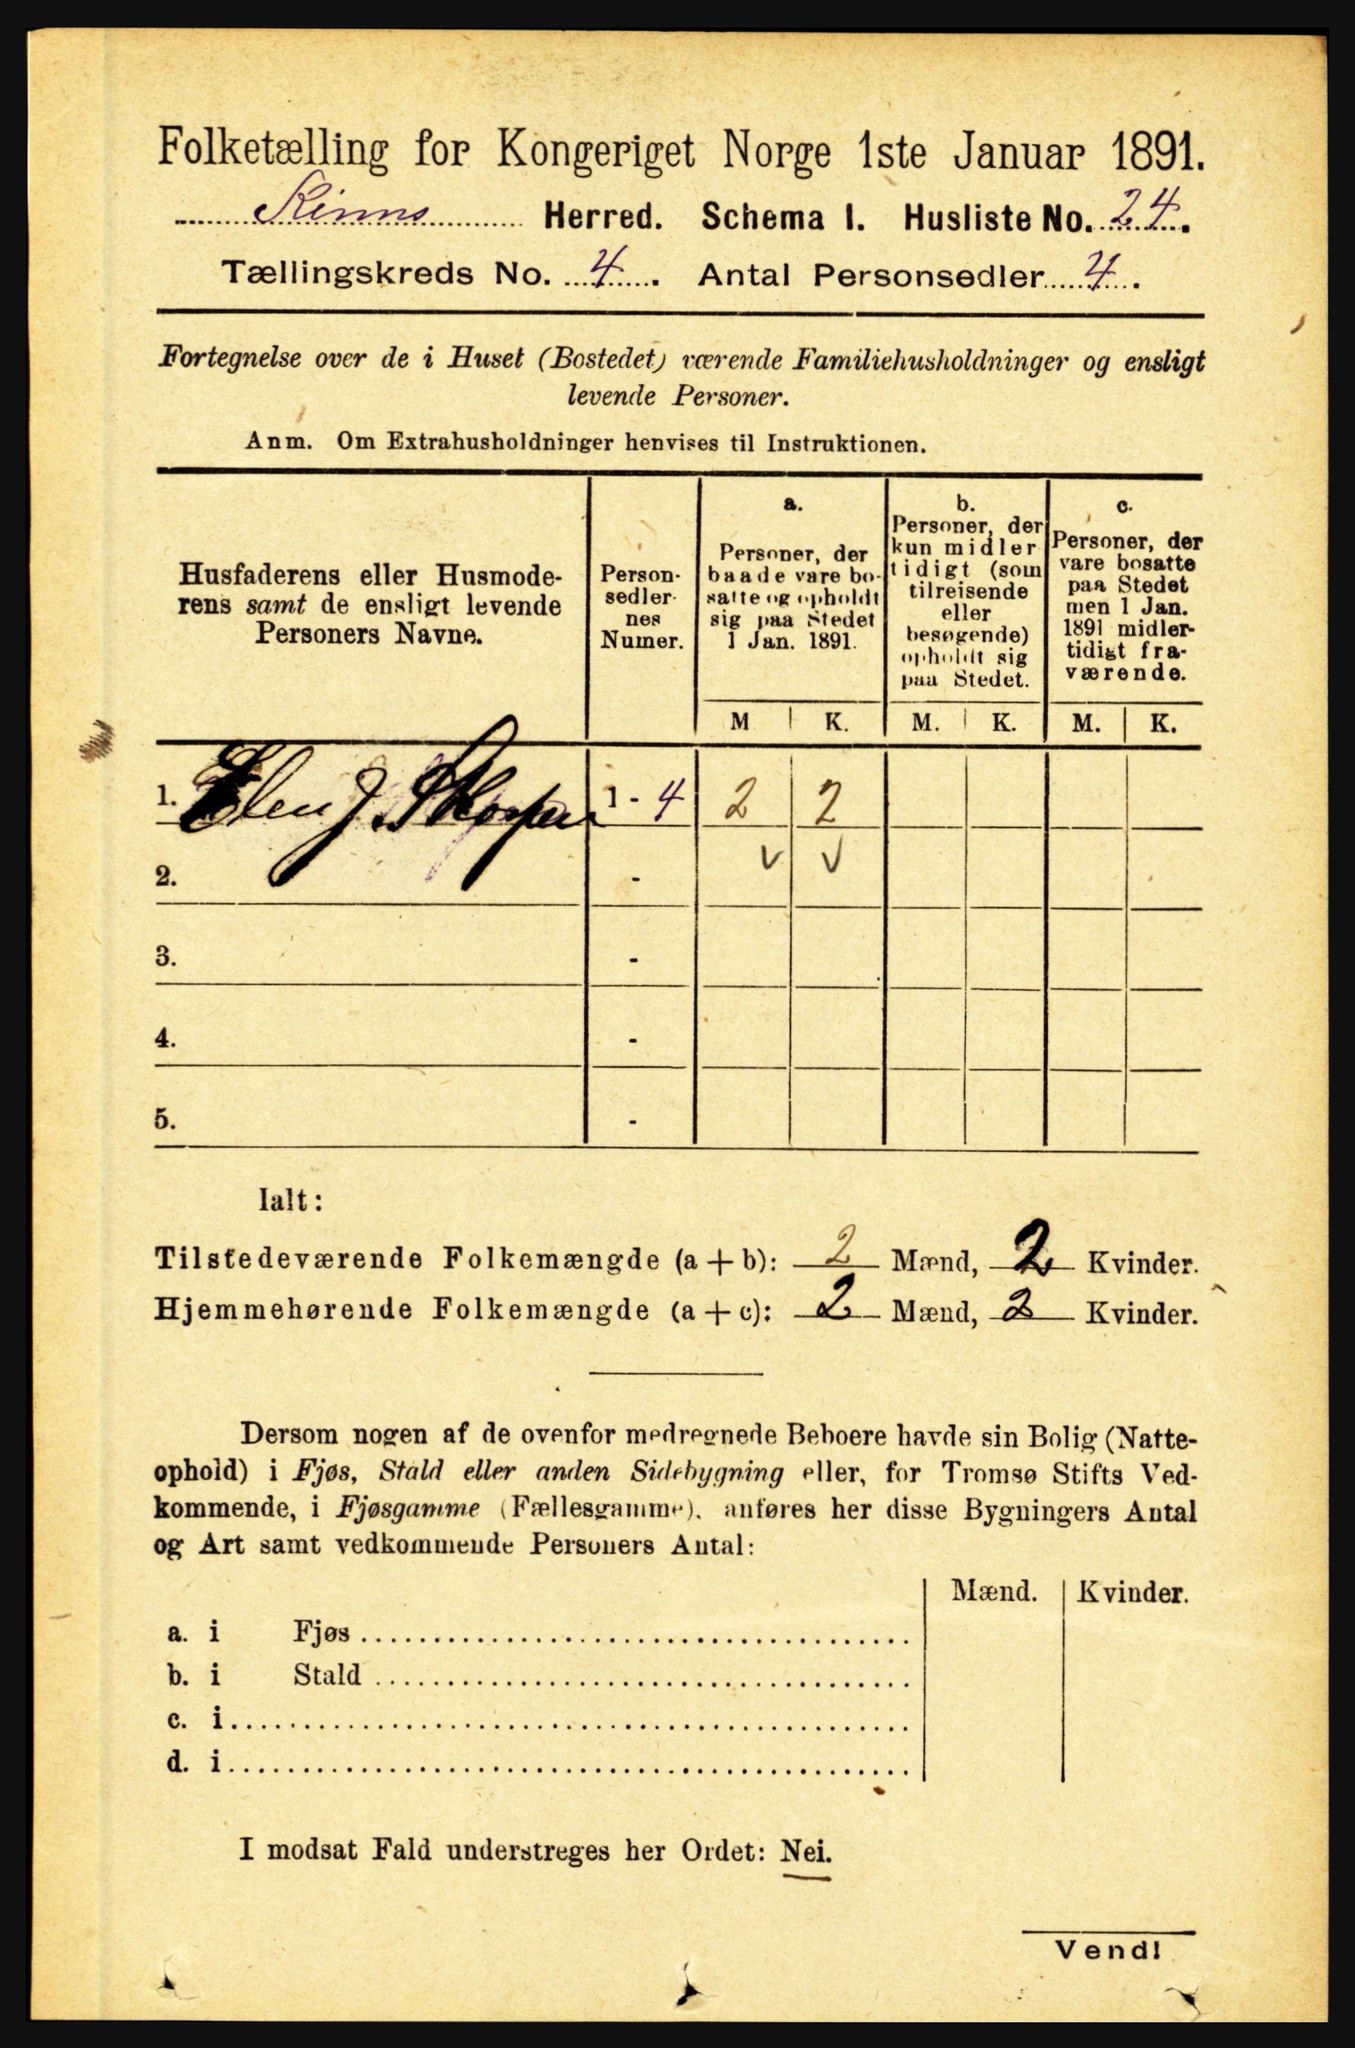 Folketælling for Kongeriget Norge 1ste Januar 1891.
Kinns Herred. Schema I. Husliste No. 24.
Tællingskreds No. 4. Antal Personsedler 4.
Fortegnelse over de i Huset (Bostedet) værende Familiehusholdninger og ensligt
levende Personer.
Anm. Om Extrahusholdninger henvises til Instruktionen.
Husfaderens eller Husmode-
rens samt de ensligt levende
Personers Navne.
Person-
sedler-
nes
Numer.
a.
Personer, der
baade vare bo-
satte og opholdt
sig paa Stedet
1 Jan. 1891.
b.
Personer, der
kun midler
tidigt (som
tilreisende
eller
besøgende)
opholdt sig
paa Stedet.
c.
Personer, der
vare bosatte
paa Stedet
men 1 Jan.
1891 midler-
tidigt fra-
værende.
M K. M. K. M. K.
1. J. 1 - 4 2 2
2. - v v
3. -
4. -
5. -
Ialt:
Tilstedeværende Folkemængde (a + b): 2 Mænd, 2 Kvinder.
Hjemmehørende Folkemængde (a + c): 2 Mænd, 2 Kvinder.
Dersom nogen af de ovenfor medregnede Beboere havde sin Bolig (Natte-
ophold) i Fjøs, Stald eller anden Sidebygning eller, for Tromsø Stifts Ved-
kommende, i Fjøsgamme (Fællesgamme), anføres her disse Bygningers Antal
og Art samt vedkommende Personers Antal:
Mænd. Kvinder.
a. i Fjøs
b. i Stald
c. i
d. i
I modsat Fald understreges her Ordet: Nei.
Vend!